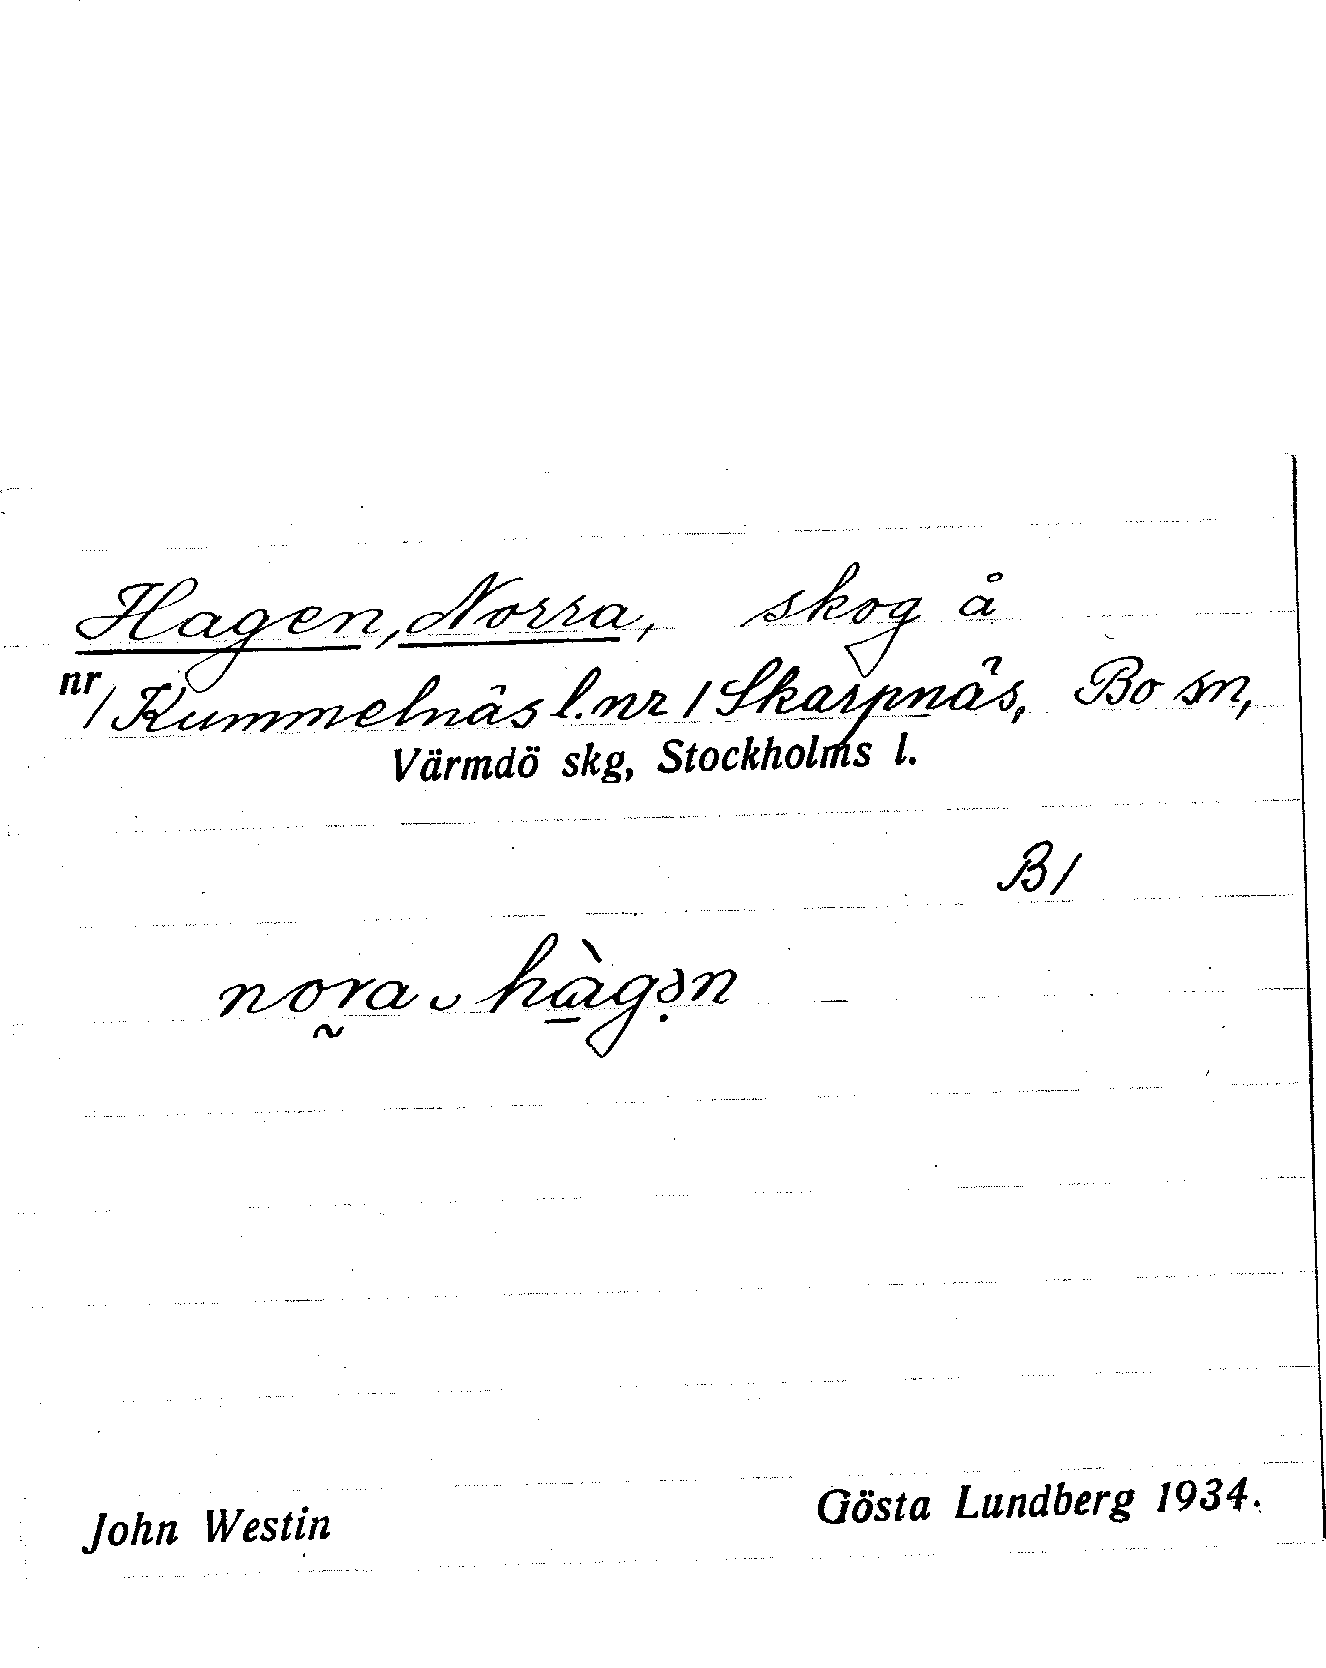 Hagen, Norra, skog å
nr 1 Kummelnäs l. nr 1 Skarpnäs, Bo sn,
Värmdö skg, Stockholms l.
B1
nora ᴗ hàgən
John Westin Gösta Lundberg 1934.